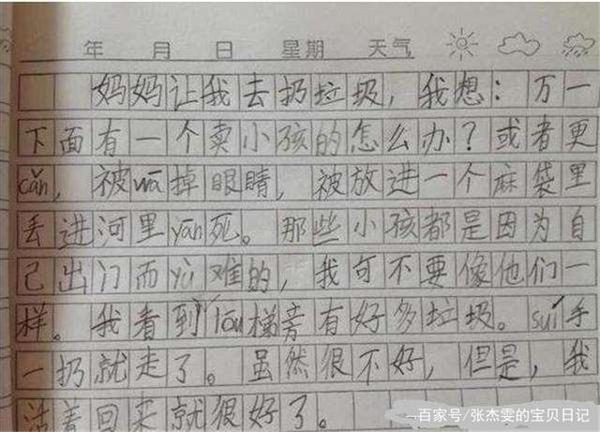 年 月 日 星期 天气
妈妈让我去扔垃圾，我想：万一
下面有一个卖小孩的怎么办？或者更
cǎn，被wā掉眼睛，被放进一个麻袋里
丢进河里yān死。那些小孩都是因为自
己出门而yù难的，我可不要像他们一
样。我看到lóu梯旁有好多垃圾。suí手
一扔就走了。虽然很不好，但是，我
活着回来就很好了。
百家号/张杰雯的宝贝日记